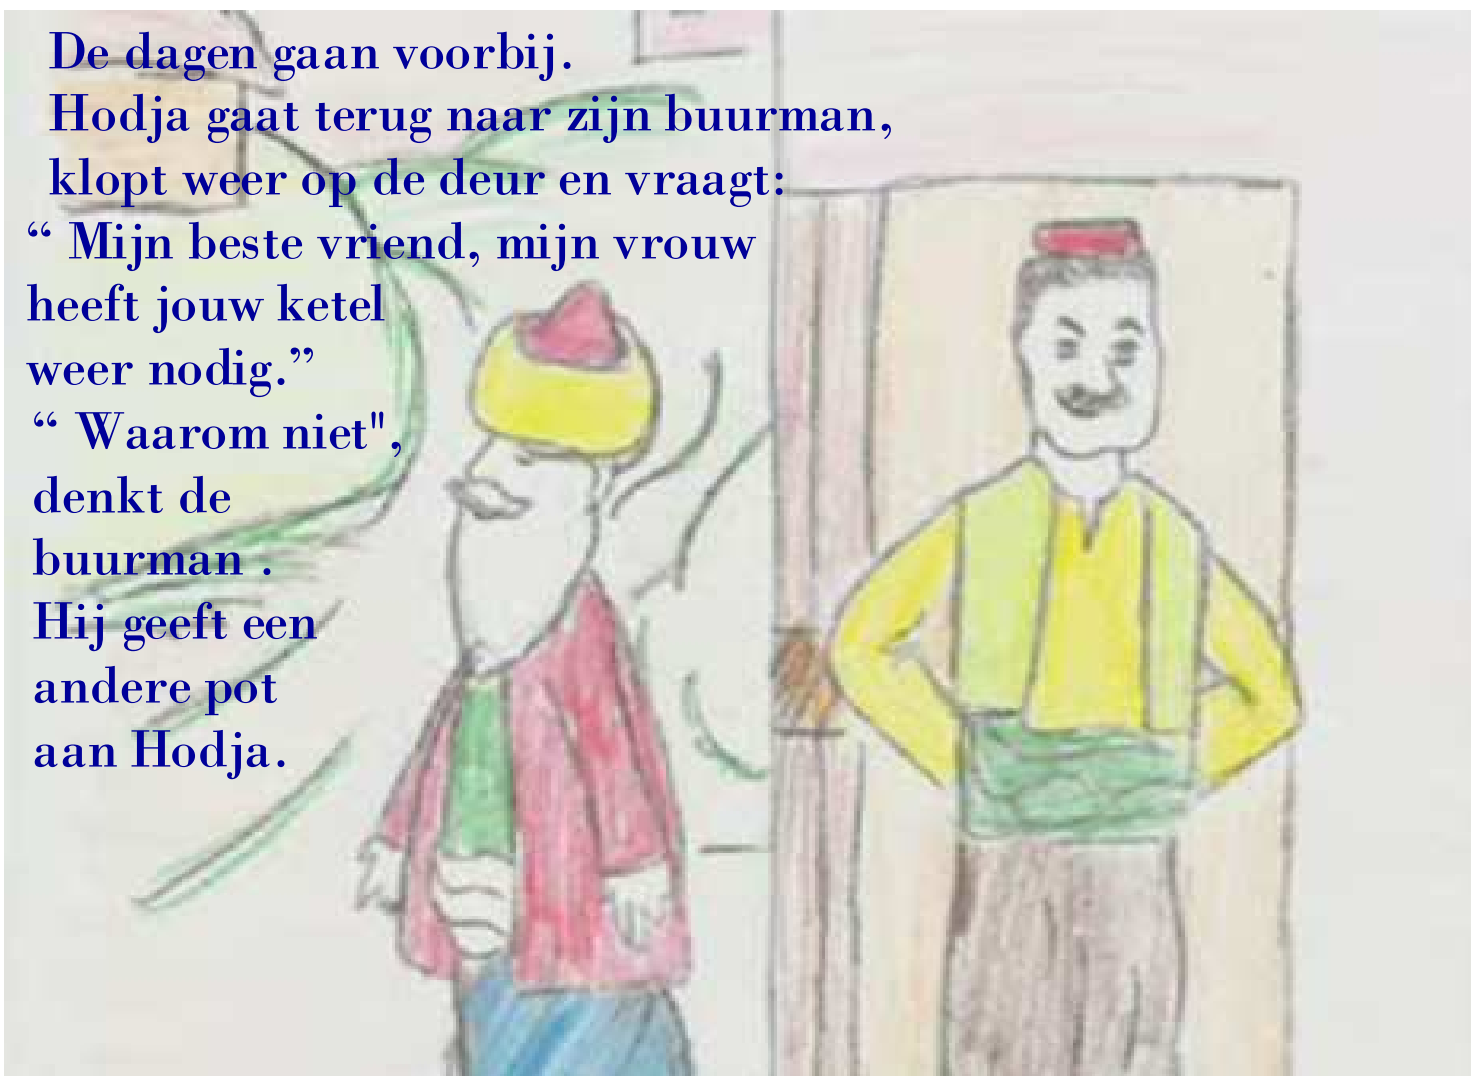 De dagen gaan voorbij.
Hodja gaat terug naar zijn buurman,
klopt weer op de deur en vraagt:
“ Mijn beste vriend, mijn vrouw
heeft jouw ketel
weer nodig.”
“ Waarom niet",
denkt de
buurman .
Hij geeft een
andere pot
aan Hodja.